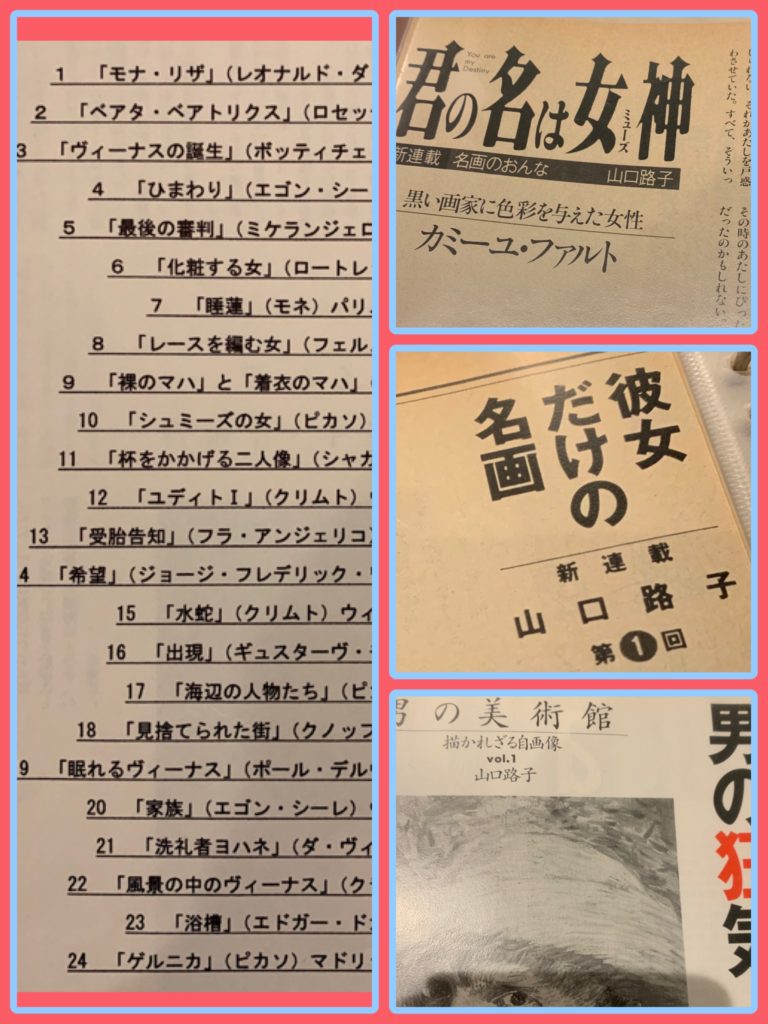 1 「モナ・リザ」(レオナルド・ダ
2 「ベアタ・ベアトリクス」(ロセッ
3 「ヴィーナスの誕生」(ボッティチェ
4 「ひまわり」(エゴン・シー
5 「最後の審判」(ミケランジェロ
6 「化粧する女」(ロートレ
7 「睡蓮」(モネ)パリ
8 「レースを編む女」(フェル
9 「裸のマハ」と「着衣のマハ」(
10 「シュミーズの女」(ピカソ)
11 「杯をかかげる二人像」(シャガ
12 「ユディトⅠ」(クリムト)
13 「受胎告知」(フラ・アンジェリコ)
4 「希望」(ジョージ・フレデリック・
15 「水蛇」(クリムト)ウィ
16 「出現」(ギュスターヴ・
17 「海辺の人物たち」(ピ
18 「見捨てられた街」(クノップ
9 「眠れるヴィーナス」(ポール・デル
20 「家族」(エゴン・シーレ)
21 「洗礼者ヨハネ」(ダ・ヴィ
22 「風景の中のヴィーナス」(クラ
23 「浴槽」(エドガー・ド
24 「ゲルニカ」(ピカソ)マドリ
You are
my
Destiny
君の名は女神
ミューズ
新連載 名画のおんな 山口路子
黒い画家に色彩を与えた女性
カミーユ・ファルト
それがあたしを戸惑
わさせていた。すべて、そういっ
その時のあたしにぴった
だったのかもしれない。
彼女
だけの
名画
新連載
山口路子
第1回
男の美術館
描かれざる自画像
vol.1
山口路子
男の狂気